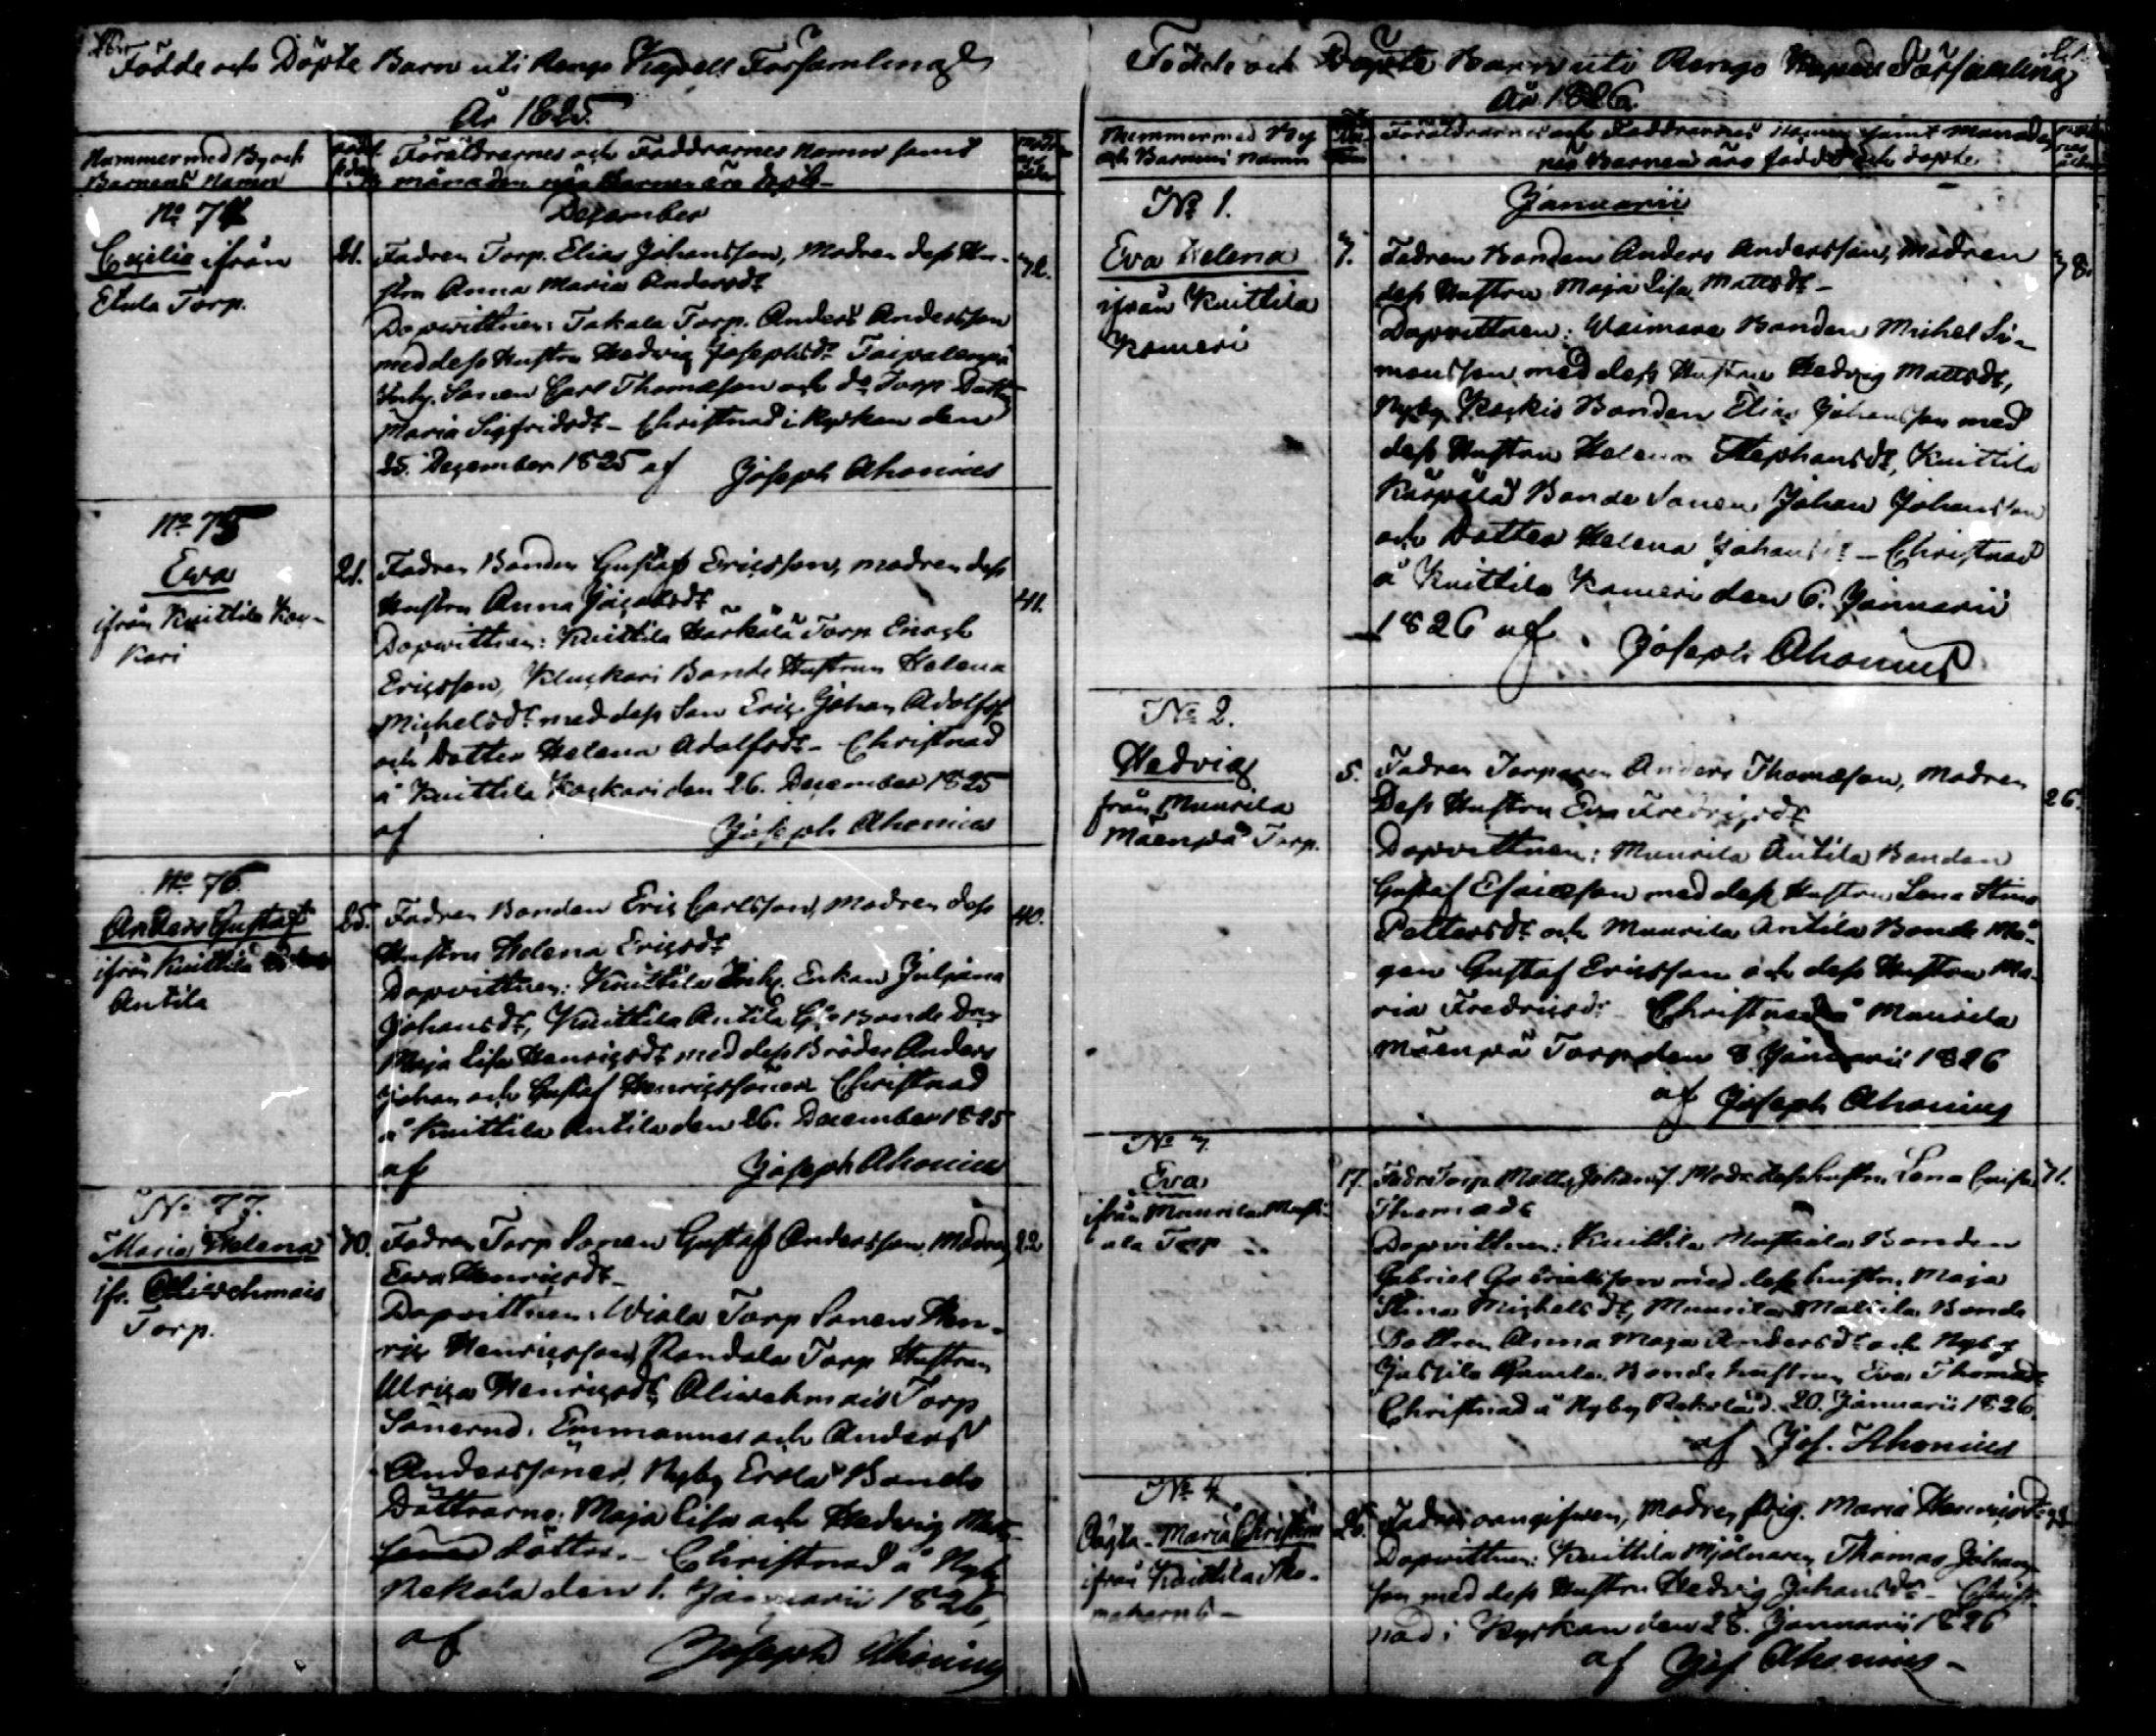 Födde och Döpte Barn uti Rengo Kapell Församling
År 1825.
Nummer med By och
Barnens Namn
Föräldrarnes och Faddrarnes Namn samt
månaden när Barnen äro döpte
December
No 74
Cecilia ifrån
Etula Torp.
21. Fadren Torp. Elias Johansson, Modren dess Hu-
stru Anna Maria Andersdr
Dopvittnen: Takala Torp. Anders Andersson
med dess Hustru Hedvig Josephsdr
Sonen Carl Thomasson och do Torp. Dotter
Maria Sigfridsdr - Christnad i Kyrkan den
25. December 1825 af Joseph Ahonius
No 75
Ewa
ifrån Knittila Koc-
kari
21. Fadren Bonden Gustaf Ericsson, modren dess
Hustru Anna Jacobsdr
41.
Dopvittnen: Knittila Härkälä Torp. Enoch
Ericsson, Kluckari Bonde Hustrun Helena
Michelsdr med dess Son Eric Johan Adolfss.
och Dotter Helena Adolfsdr - Christnad
å Knittila Kockari den 26. December 1825
af Joseph Ahonius
No 76
Anders Gustaf
ifrån Knittila
Antila
25. Fadren Bonden Eric Carlsson, Modren dess
40.
Hustru Helena Ericsdr
Dopvittnen: Knittila Enkan Juliana
Johansdr, Knittila Antila Bonde
Maja Lisa Henricsdr med dess Bröder Anders
Johan och Gustaf Henricssöner Christnad
å Knittila Antila den 26. December 1825
af Joseph Ahonius
No 77.
Maria Helena
ifr. Aliwehmais
Torp.
30. Fadren Torp Sonen Gustaf Andersson, Modren
22
Ewa Henricsdr -
Dopvittnen: Wiala Torp Sonen Hen-
ric Henricsson, Randala Torp Hustrun
Ulrica Henricsdr, Aliwehmais Torp
Sönerne: Emmanuel och Anders
Anderssöner, Nyby Erola Bonde
Döttrarne: Maja Lisa och Hedvig Mats
döttrar. - Christnad å Nyby
Rekola den 1. Januarii 1826,
af Joseph Ahonius
Födde och Döpte Barn uti Rengo Kapell Församling
År 1826.
Nummer med By
och Barnens Namn
Föräldrarnes och Faddrarnes Namn samt Månaden
när Barnen äro födde och döpte
Januarii
No 1.
Eva Helena
ifrån Knittila
Kameri
3. Fadren Bonden Anders Andersson, Modren
38.
dess Hustru Maja Lisa Mattsdr -
Dopvittnen: Waimara Bonden Michel Si-
monsson med dess Hustru Hedvig Mattsdr,
Nyby Kockis Bonden Elias Johansson med
dess Hustru Helena Stephansdr, Knittila
Kärpälä Bonde Sonen Johan Johansson
och Dotter Helena Johansdr - Christnad
å Knittila Kameri den 6. Januarii
1826 af Joseph Ahonius
No 2.
Hedvig
från Muurila
Mäenpää Torp.
5. Fadren Torparen Anders Thomasson, Modren
26.
Dess Hustru Eva Fredricsdr
Dopvittnen: Muurila Antila Bonden
Gustaf Esaiasson med dess Hustru Lena Stina
Pettersdr och Muurila Antila Bonde Må-
gen Gustaf Ericsson och dess Hustru Ma-
ria Fredricsdr Christnad å Muurila
Mäenpää Torp den 8 Januarii 1826
af Joseph Ahonius
No 3.
Eva
ifrån Muurila
ala Torp
17. Fadr. Torp. Matts Johanss. Modr. dess hustru Lena Caisa
Thomasdr
Dopvittnen: Knittila Bonden
Gabriel Gabrielsson med dess hustru Maja
Stina Michelsdr, Muurila Mattila Bonde
Dottren Anna Maja Andersdr och Nyby
Bonde hustrun Eva Thomasdr
Christnad å Nyby Rekola d. 20. Januarii 1826.
af Jos. Ahonius
No 4
Oägta Maria Christina
ifrån Knittila
26. Fadren oangifwen, Modren pig. Maria Henricsdr
Dopvittnen: Knittila Mjölnaren Thomas Johans-
son med dess Hustru Hedvig Johansdr - Christ-
nad i Kyrkan den 28. Januarii 1826
af Jos Ahonius -